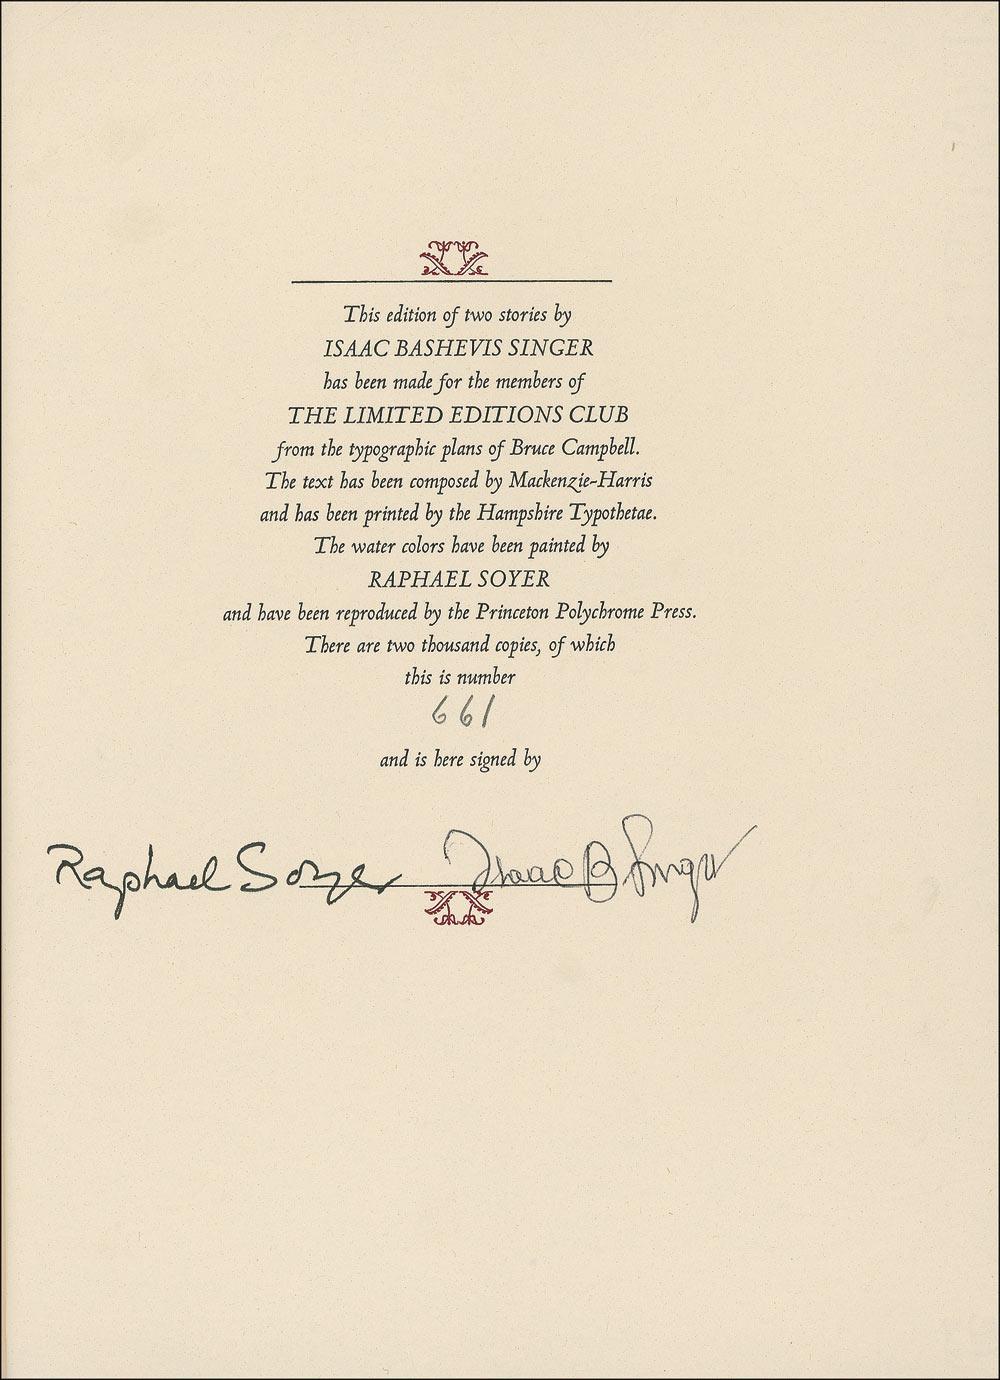 This edition of two stories by
ISAAC BASHEVIS SINGER
has been made for the members of
THE LIMITED EDITIONS CLUB
from the typographic plans of Bruce Campbell.
The text has been composed by Mackenzie-Harris
and has been printed by the Hampshire Typothetae.
The water colors have been painted by
RAPHAEL SOYER
and have been reproduced by the Princeton Polychrome Press.
There are two thousand copies, of which
this is number
661
and is here signed by
Raphael Soyer Isaac B Singer